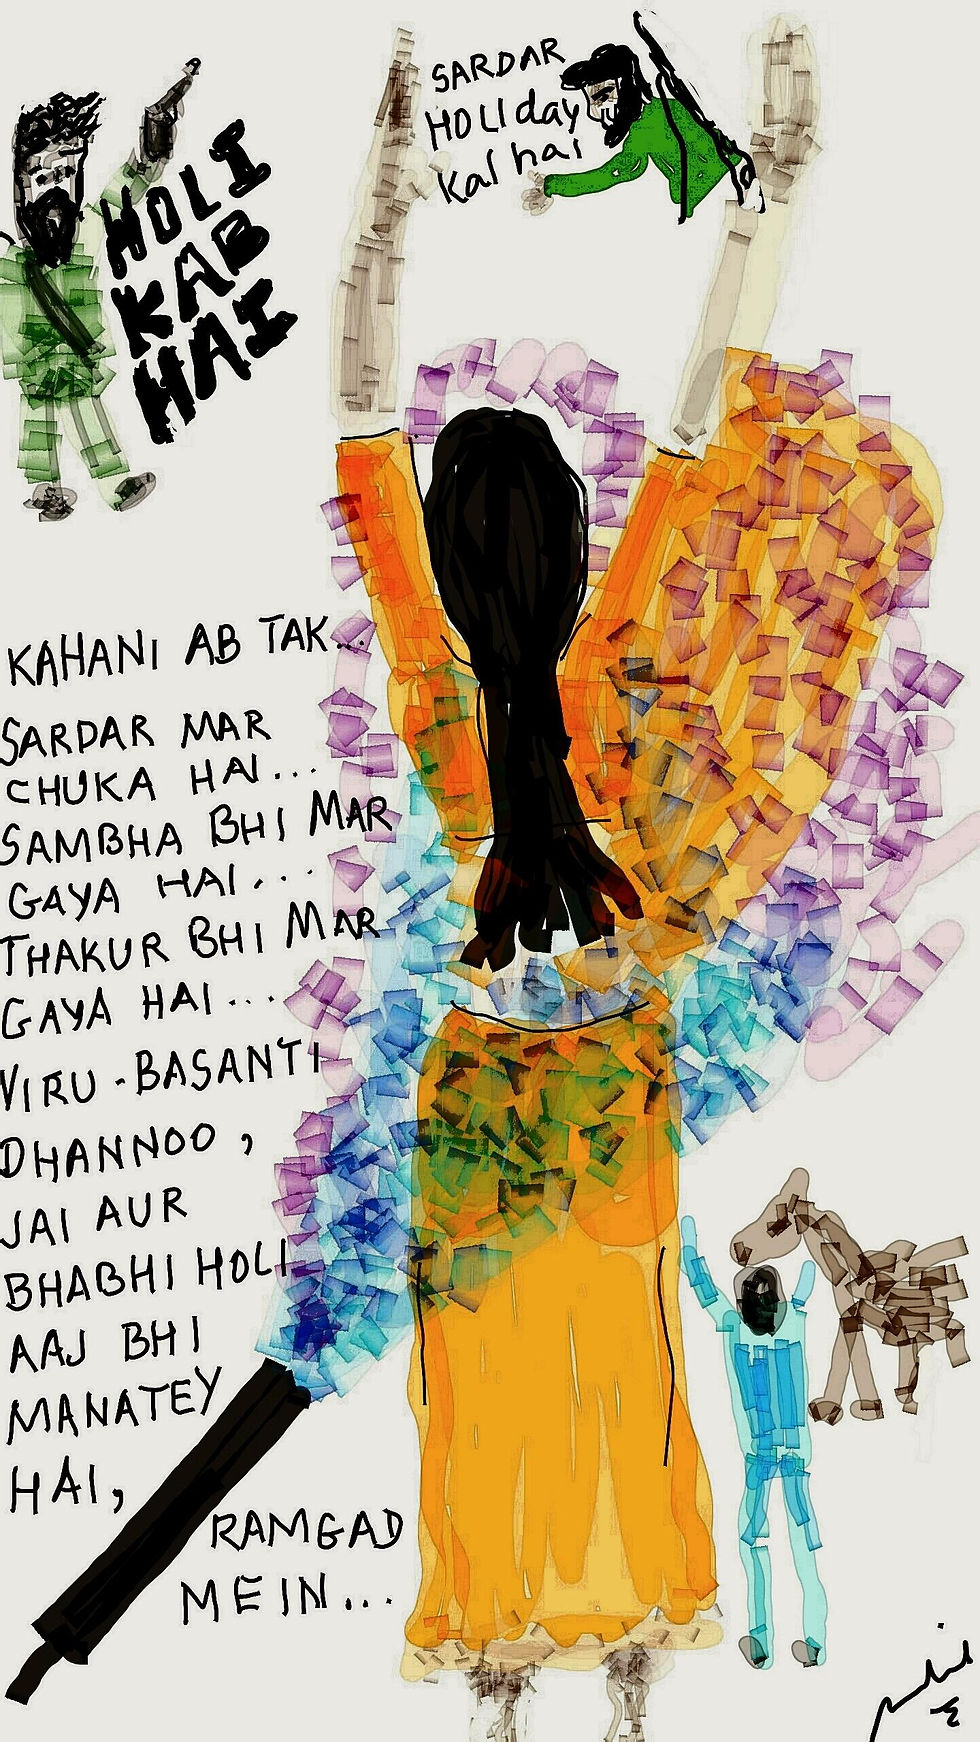 HOLI
KAB
HAI
SARDAR
HOLIday
Kal hai
KAHANI AB TAK...
SARDAR MAR
CHUKA HAI...
SAMBHA BHI MAR
GAYA HAI...
THAKUR BHI MAR
GAYA HAI...
VIRU-BASANTI
DHANNOO,
JAI AUR
BHABHI HOLI
AAJ BHI
MANATEY
HAI,
RAMGAD
MEIN...